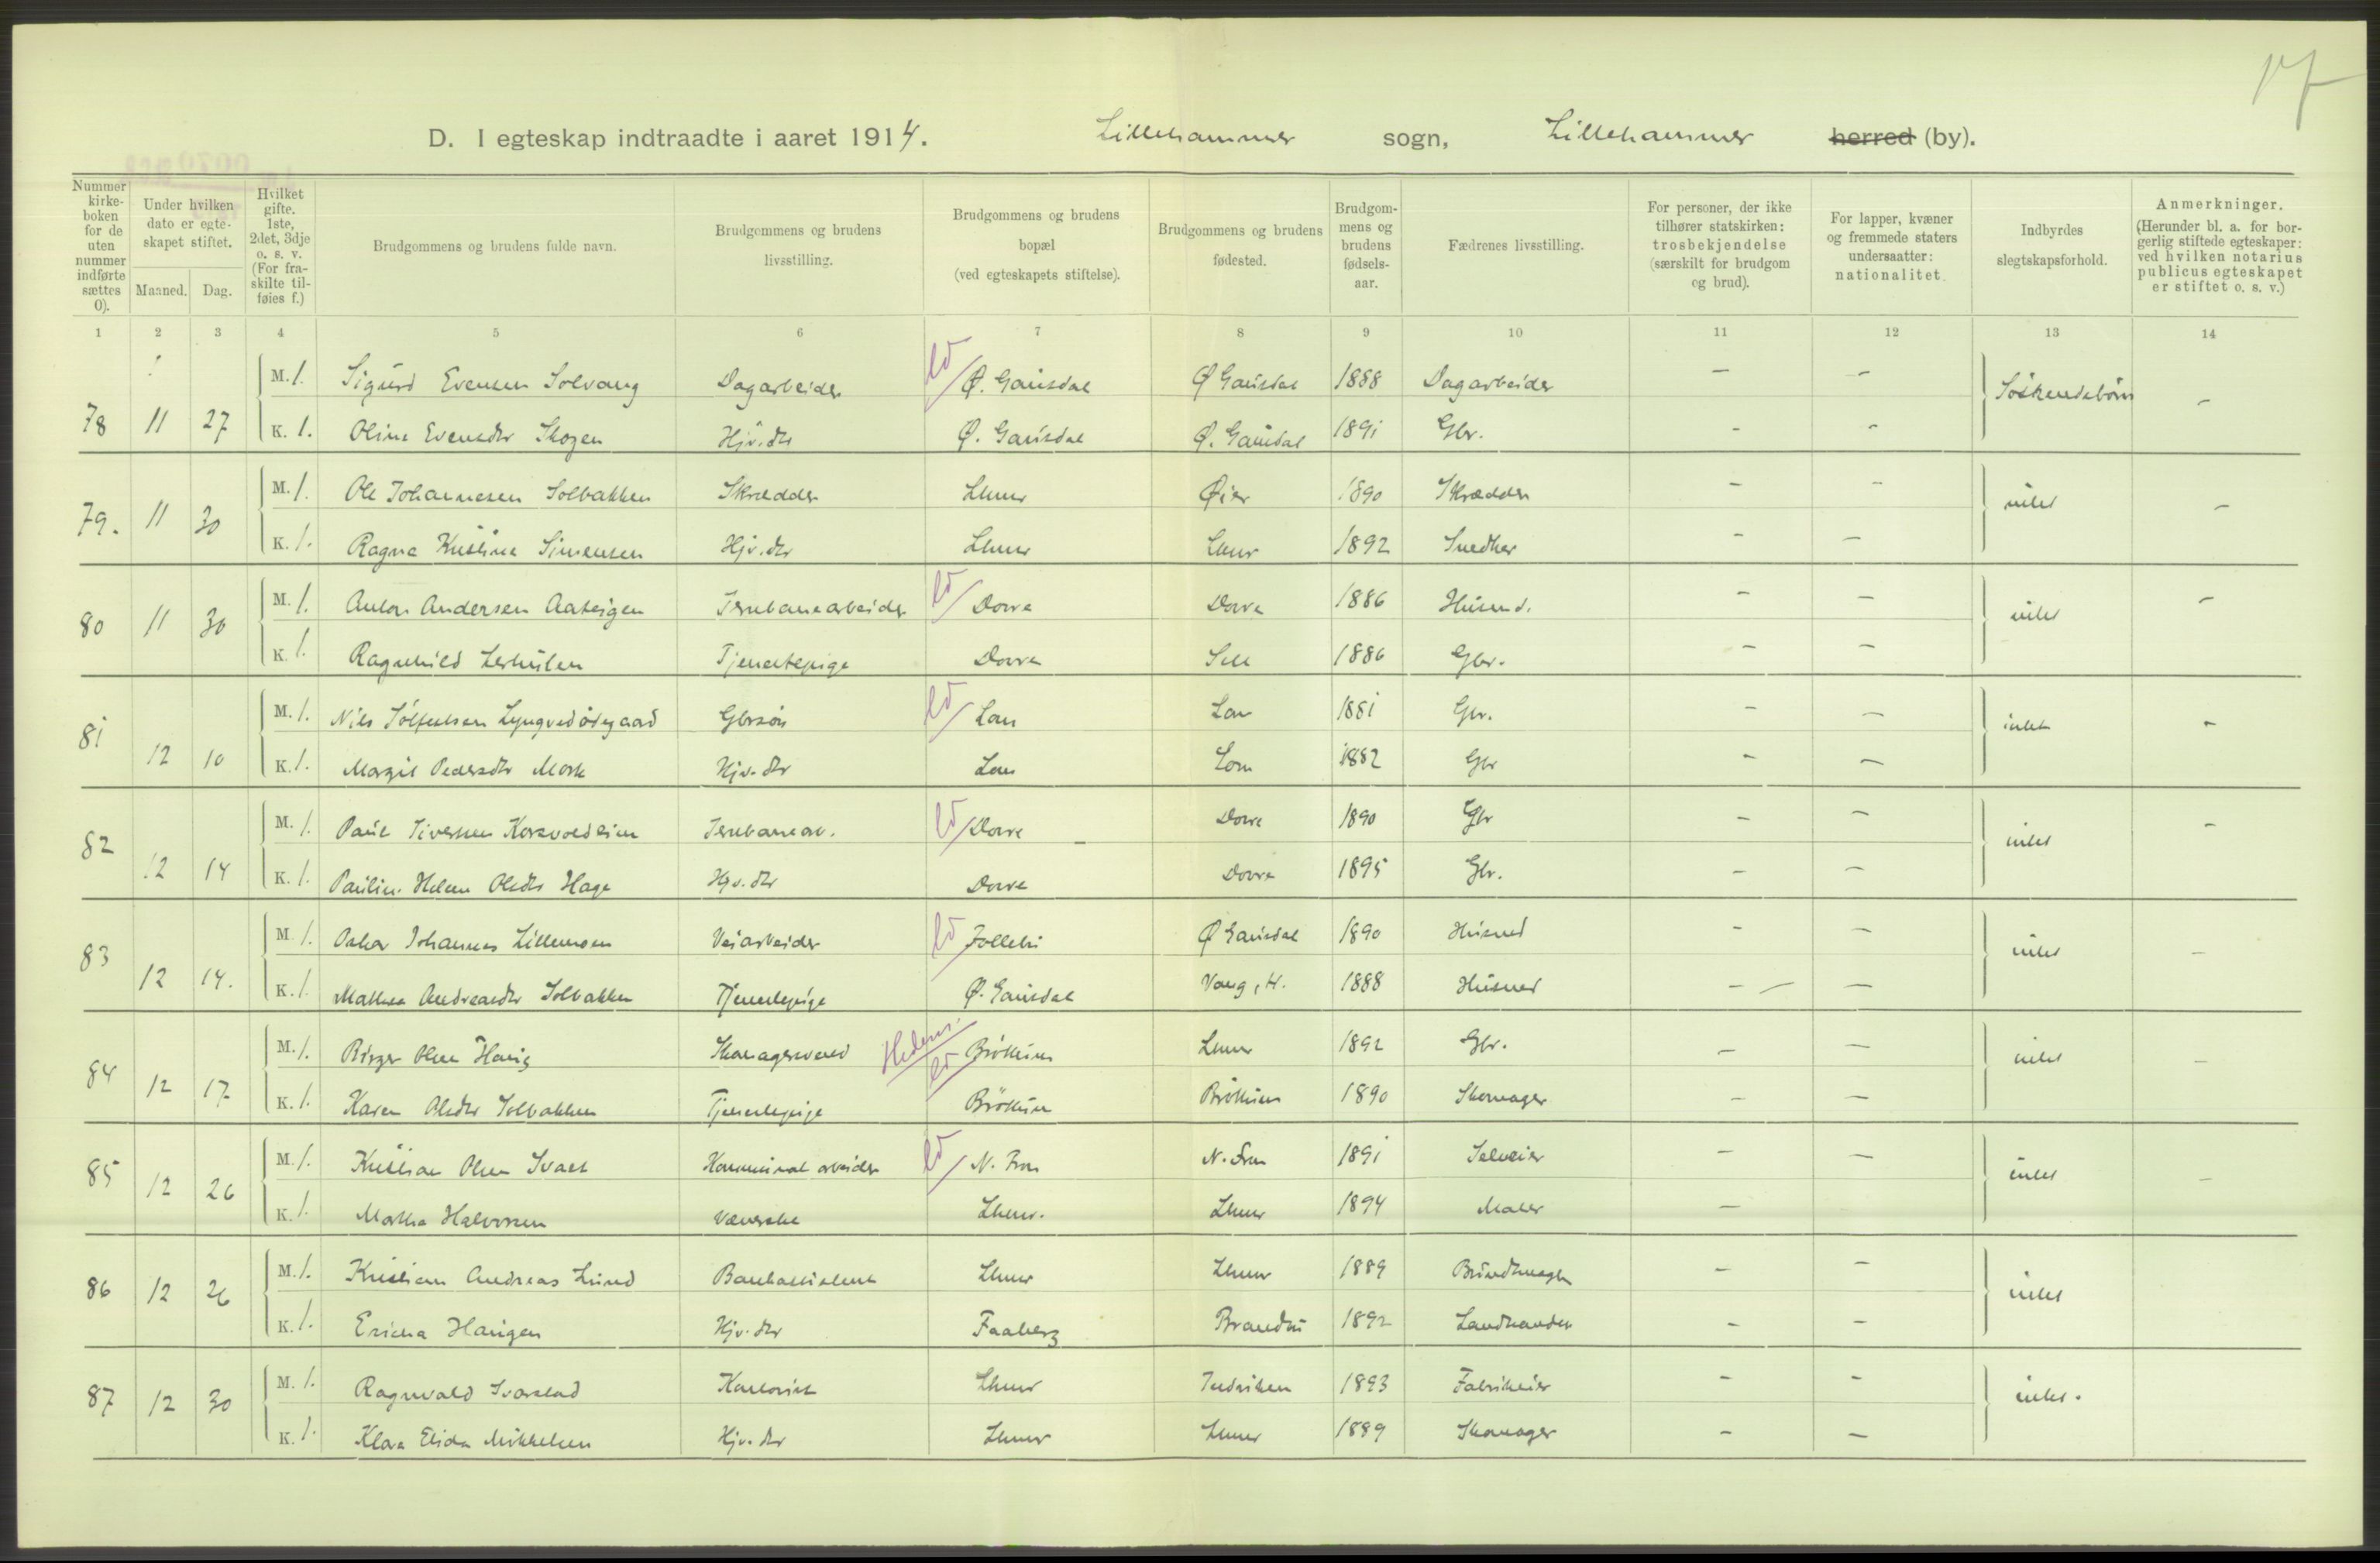 17
D. I egteskap indtraadte i aaret 1914. Lillehammer sogn, Lillehammer herred (by).
Nummer kirkeboken for de uten nummer indførte sættes 0).
Under hvilken dato er egteskapet stiftet.
Maaned. Dag.
Hvilket gifte. 1ste, 2det, 3dje o. s. v. (For fraskilte tilføies f.)
Brudgommens og brudens fulde navn.
Brudgommens og brudens livsstilling.
Brudgommens og brudens bopæl (ved egteskapets stiftelse).
Brudgommens og brudens fødested.
Brudgommens og brudens fødselsaar.
Fædrenes livsstilling.
For personer, der ikke tilhører statskirken: trosbekjendelse (særskilt for brudgom og brud).
For lapper, kvæner og fremmede staters undersaatter: nationalitet.
Indbyrdes slegtskapsforhold.
Anmerkninger. (Herunder bl. a. for borgerlig stiftede egteskaper: ved hvilken notarius publicus egteskapet er stiftet o. s. v.)
1 2 3 4 5 6 7 8 9 10 11 12 13 14
M. 1. Sigurd Evensen Solvang Dagarbeider ld Ø. Gausdal Ø Gausdal 1888 Dagarbeider – – Søskendebørn –
78 11 27 K. 1. Oline Evensdtr Skogen Hjv. dtr Ø. Gausdal Ø. Gausdal 1891 Gbr. – –
M. 1. Ole Johannesen Solbakken Skrædder Lhmr Øier 1890 Skrædder – – intet –
79. 11 30 K. 1. Ragna Kristine Simensen Hjv. dtr Lhmr Lhmr 1892 Snedker – –
M. 1. Anton Andersen Aasteigen Jernbanearbeider ld Dovre Dovre 1886 Husmd. – – intet –
80 11 30 K. 1. Ragnhild Lerhulen Tjenestepige Dovre Sell 1886 Gbr. – –
M. 1. Nils Lyngvedødegaard Gbrsøn ld Lom Lom 1881 Gbr. – – intet –
81 12 10 K. 1. Margit Pedersdtr Mork Hjv. dtr Lom Lom 1882 Gbr – –
M. 1. Paul Siversen Korsvoldeien Jernbanearb. ld Dovre Dovre 1890 Gbr – – intet –
82 12 14 K. 1. Pauline Helene Olsdtr Hage Hjv. dtr Dovre Dovre 1895 Gbr. – –
M. 1. Oskar Johannes Lillemoen Veiarbeider ld Follebu Ø Gausdal 1890 Husmd – – intet –
83 12 14. K. 1. Mathea Andreasdtr Solbakken Tjenestepige Ø. Gausdal Vang, H. 1888 Husmd – –
M. 1. Birger Olsen Haug Skomagersvend Hedem. ld Brøttum Lhmr 1892 Gbr. – – intet –
84 12 17 K. 1. Karen Olsdtr Solbakken Tjenestepige Brøttum Brøttum 1890 Skomager – –
M. 1. Kristian Olsen Svaet Kommunalarbeider ld N. Fron N. Fron 1891 Selveier – – intet –
85 12 26 K. 1. Martha Halvorsen Væverske Lhmr. Lhmr 1894 Maler –
M. 1. Kristian Andreas Lund Bankassistent Lhmr Lhmr 1889 Bundtmager – – intet
86 12 26 K. 1. Ericha Haugen Hjv. dtr Faaberg Brandbu 1892 Landhandler – –
M. 1. Ragnvald Svarstad Kontorist Lhmr Inderøen 1893 Fabrikeier – – intet.
87 12 30 K. 1. Klara Elida Mikkelsen Hjv. dtr Lhmr Lhmr 1889 Skomager – –